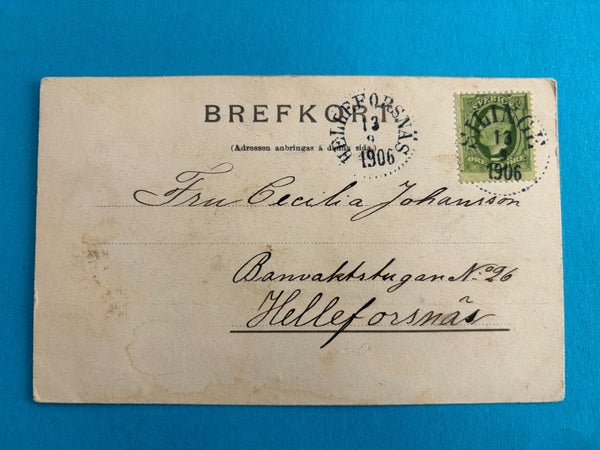 BREFKORT
(Adressen anbringas å denna sida.)
HELLEFORSNÄS
13
1906
SVERIGE
13
1906
Fru Cecilia Johansson
Banvaktstugan No. 26
Helleforsnäs